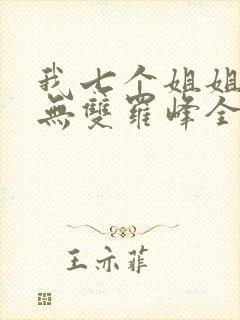 我七个姐姐
無雙羅峰全
王亦菲